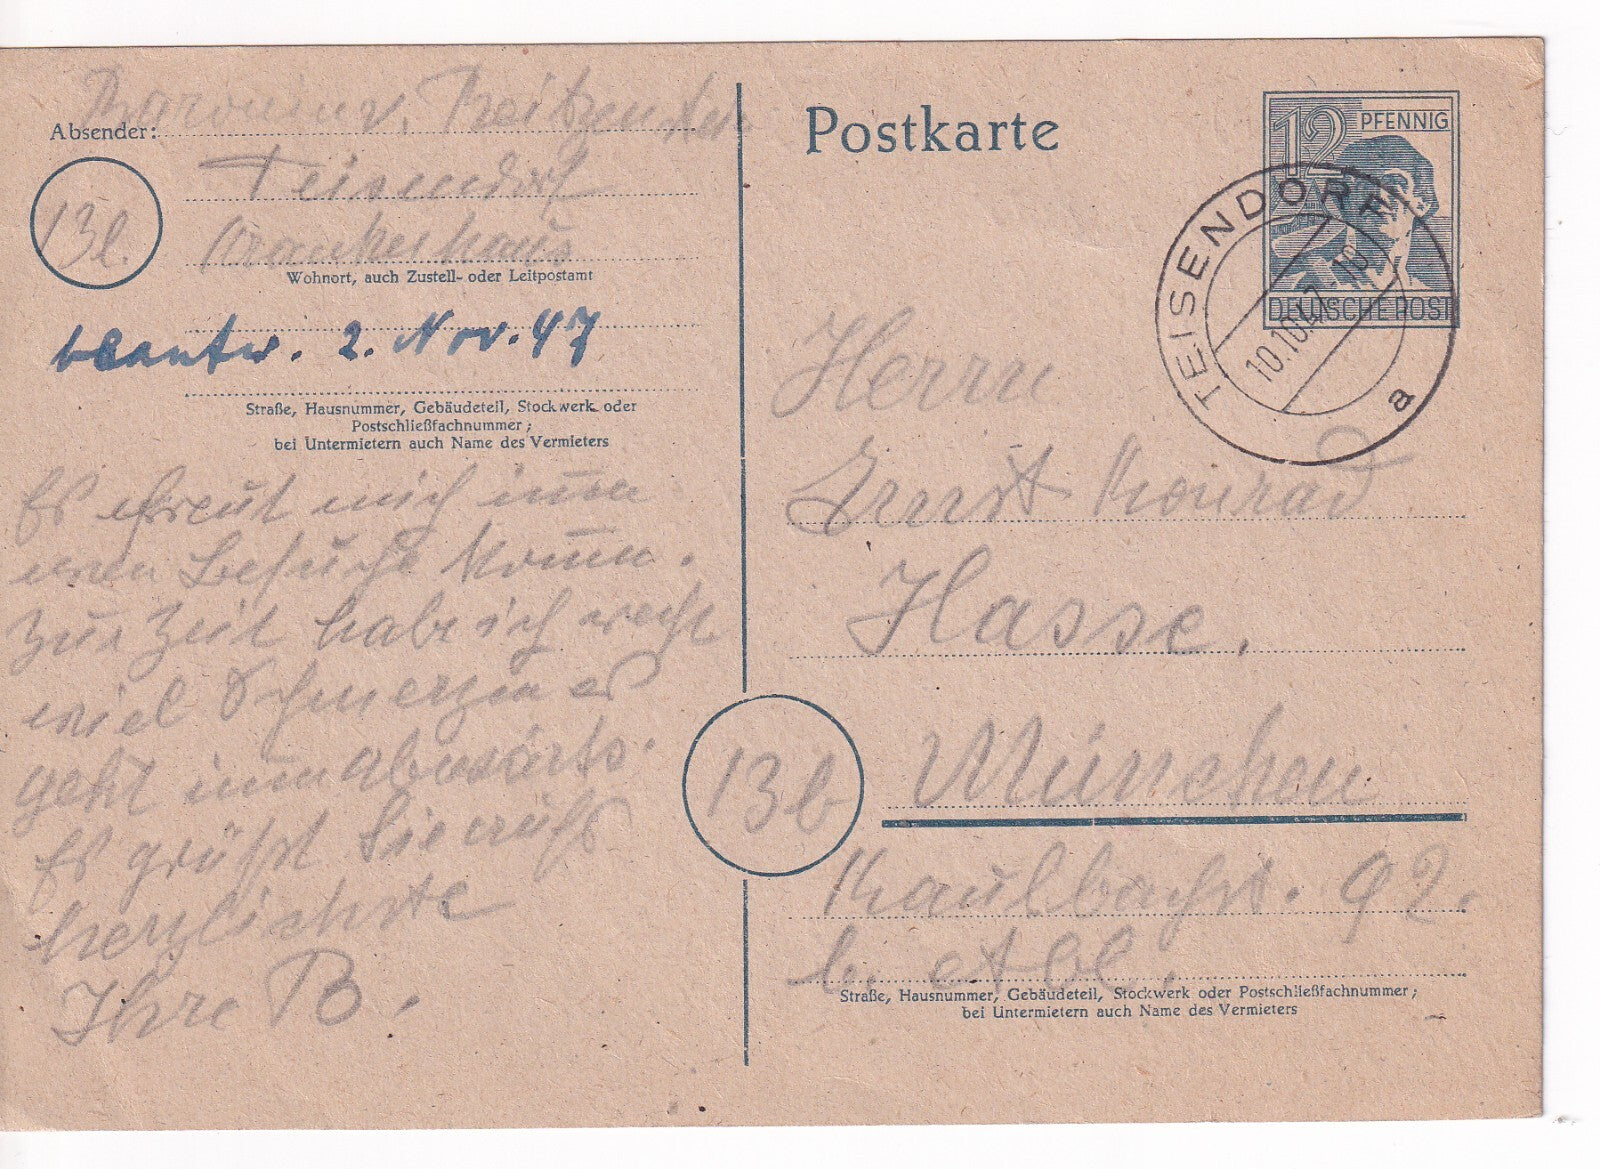 Absender:
Baronin v. Reitzenstein
Teisendorf
Krankenhaus
13b.
Wohnort, auch Zustell- oder Leitpostamt
beantw. 2. Nov. 47
Straße, Hausnummer, Gebäudeteil, Stockwerk oder
Postschließfachnummer;
bei Untermietern auch Name des Vermieters
Es freut mich im̄er
wen Besuche kom̄en.
Zur Zeit habe ich recht
viel Schmerzen es
geht im̄er abwärts.
Es grüßt Sie aufs
herzlichste
Ihre B.
Postkarte
12 PFENNIG
DEUTSCHE POST
TEISENDORF
10.10.47.-10
a
Herrn
Ernst Konrad
Hasse.
13b
München
Kaulbachst. 92.
b.
Straße, Hausnummer, Gebäudeteil, Stockwerk oder Postschließfachnummer;
bei Untermietern auch Name des Vermieters